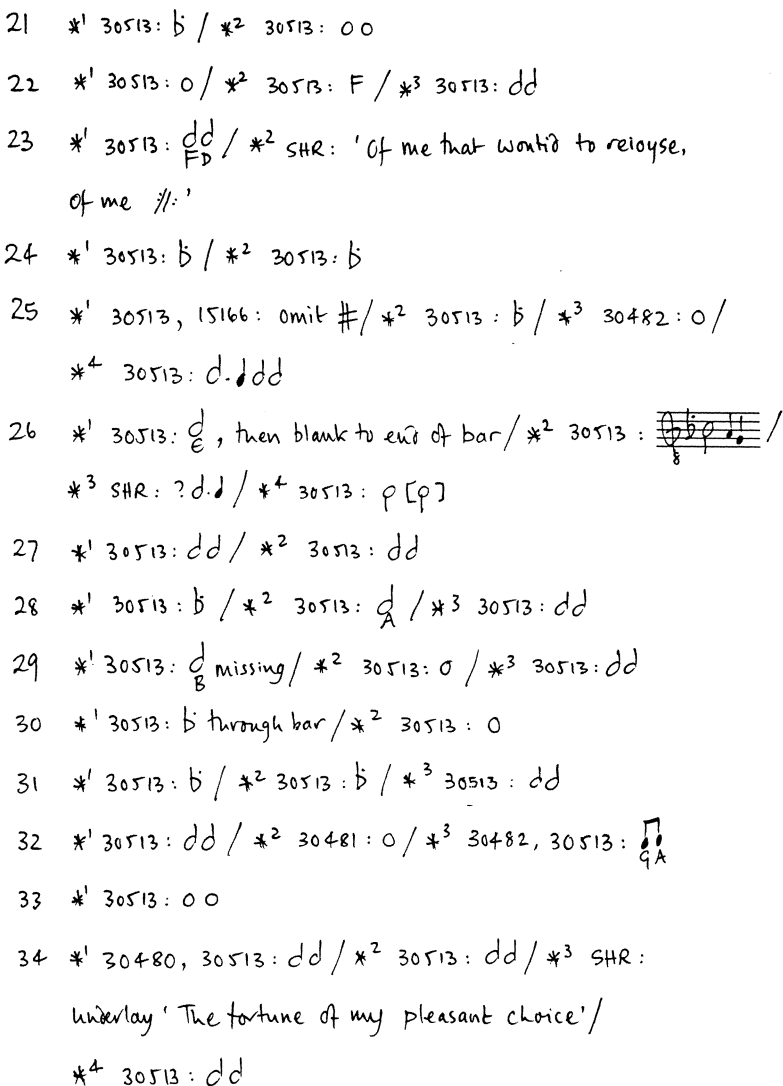 21 *¹ 30513: ♭ / *² 30513: o o
22 *¹ 30513: o / *² 30513: F / *³ 30513: dd
23 *¹ 30513: dd FD / *² SHR: 'Of me that wontid to reioyse,
of me :∥:'
24 *¹ 30513: ♭ / *² 30513: ♭
25 *¹ 30513, 15166: omit # / *² 30513: ♭ / *³ 30482: o /
*⁴ 30513: d.♩dd
26 *¹ 30513: d E, then blank to end of bar / *² 30513: 8 /
*³ SHR: ?d.♩ / *⁴ 30513: ρ [ρ]
27 *¹ 30513: dd / *² 30513: dd
28 *¹ 30513: ♭ / *² 30513: d A / *³ 30513: dd
29 *¹ 30513: d B missing / *² 30513: o / *³ 30513: dd
30 *¹ 30513: ♭ through bar / *² 30513: o
31 *¹ 30513: ♭ / *² 30513: ♭ / *³ 30513: dd
32 *¹ 30513: dd / *² 30481: o / *³ 30482, 30513: ♫ GA
33 *¹ 30513: o o
34 *¹ 30480, 30513: dd / *² 30513: dd / *³ SHR:
underlay 'The fortune of my pleasant choice' /
*⁴ 30513: dd